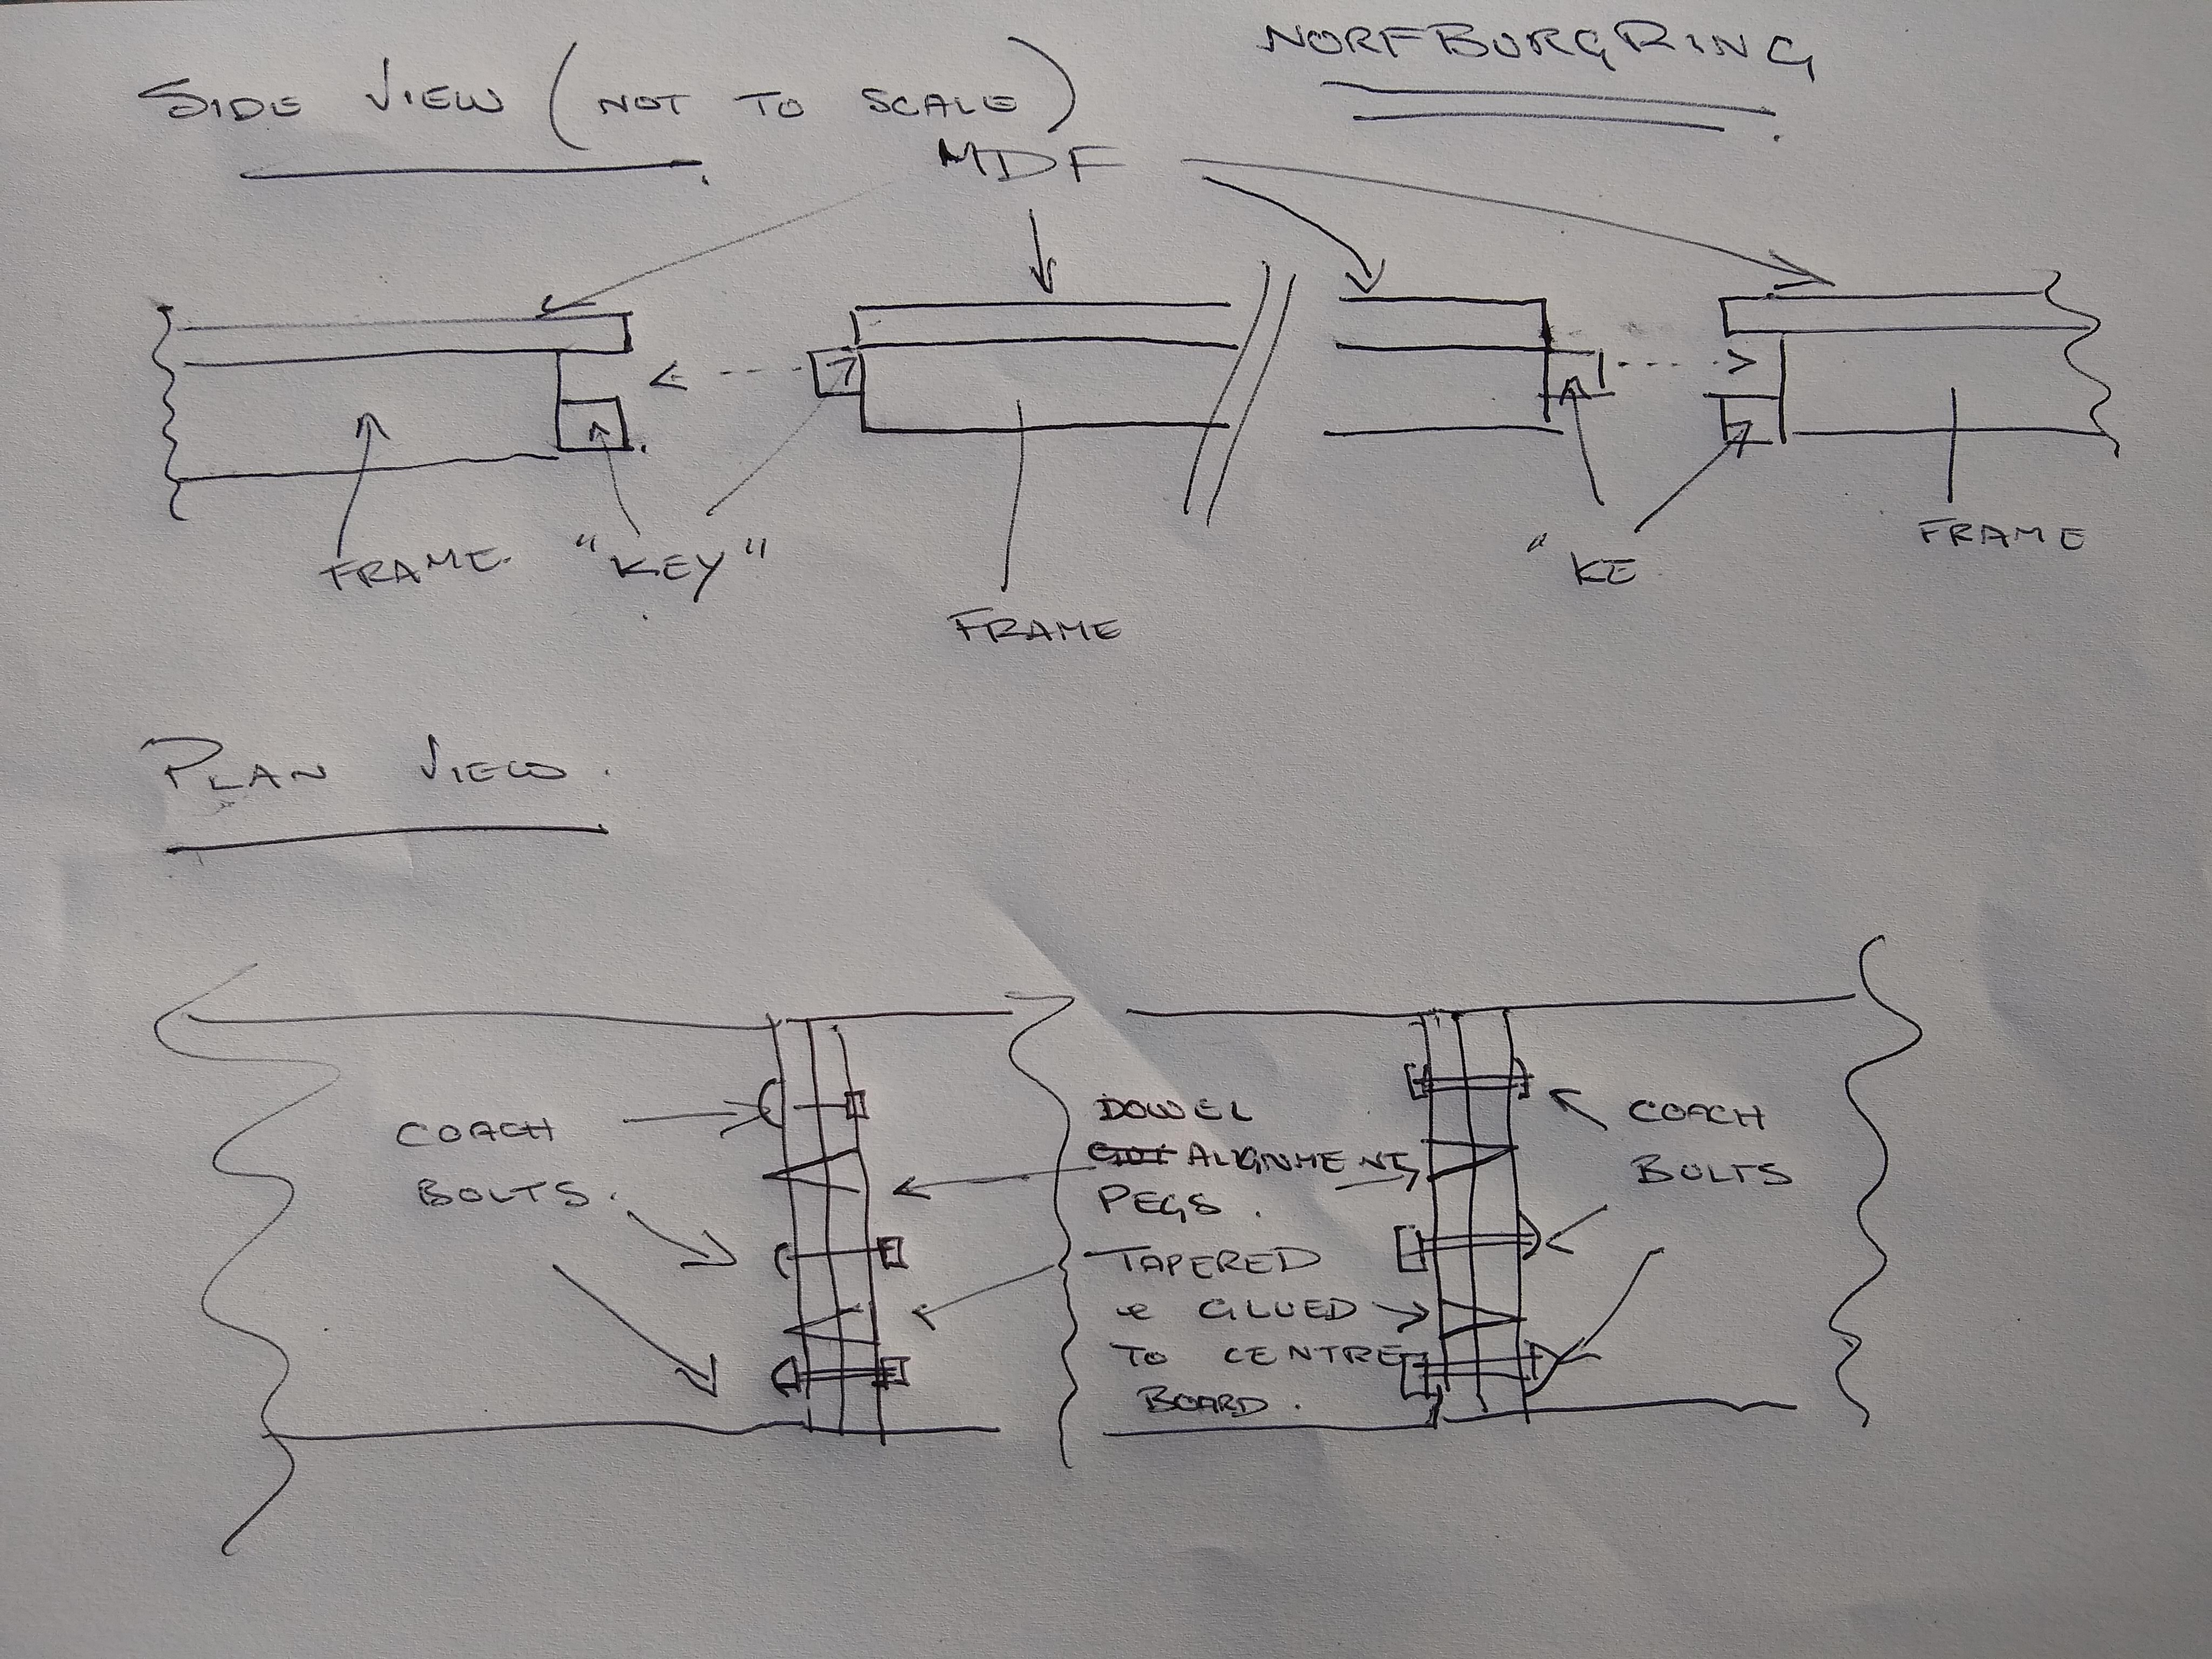 SIDE VIEW (NOT TO SCALE)
NORFBURGRING
MDF
FRAME.
"KEY"
FRAME
"KE
FRAME
PLAN VIEW.
COACH
BOLTS.
DOWEL
ALIGNMENT
PEGS.
TAPERED
& GLUED
TO CENTRE
BOARD.
COACH
BOLTS